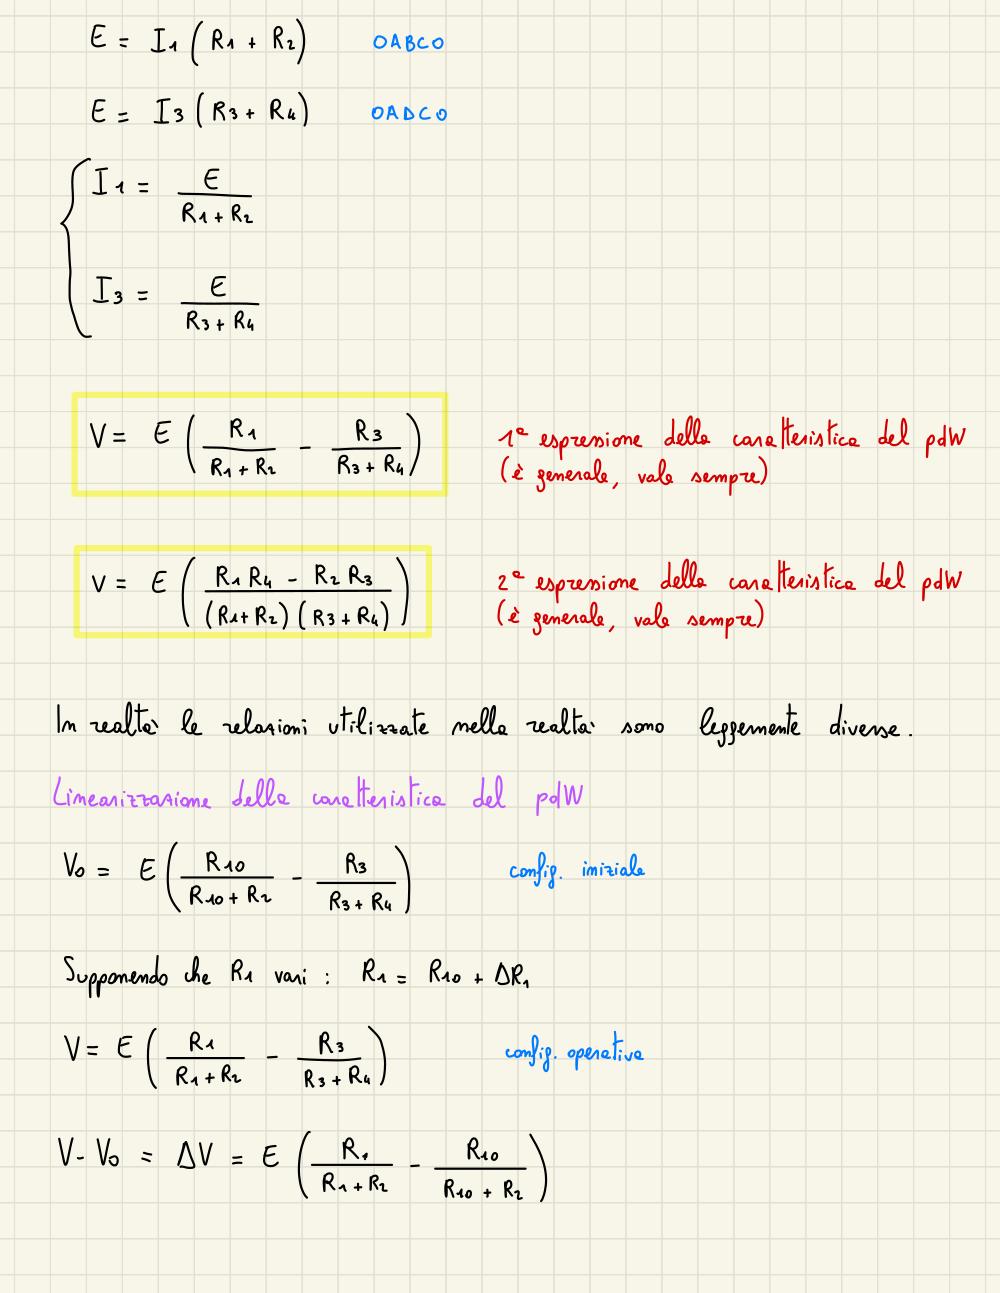 E = I1 (R1 + R2) OABCO
E = I3 (R3 + R4) OADCO
{ I1 = E / (R1 + R2)
I3 = E / (R3 + R4)
V = E (R1 / (R1 + R2) - R3 / (R3 + R4)) 1ª espressione della caratteristica del pdW
(è generale, vale sempre)
V = E ((R1 R4 - R2 R3) / ((R1 + R2) (R3 + R4))) 2ª espressione della caratteristica del pdW
(è generale, vale sempre)
In realtà le relazioni utilizzate nella realtà sono leggemente diverse.
Linearizzazione della caratteristica del pdW
V0 = E (R10 / (R10 + R2) - R3 / (R3 + R4)) config. iniziale
Supponendo che R1 vari : R1 = R10 + ΔR1
V = E (R1 / (R1 + R2) - R3 / (R3 + R4)) config. operativa
V - V0 = ΔV = E (R1 / (R1 + R2) - R10 / (R10 + R2))